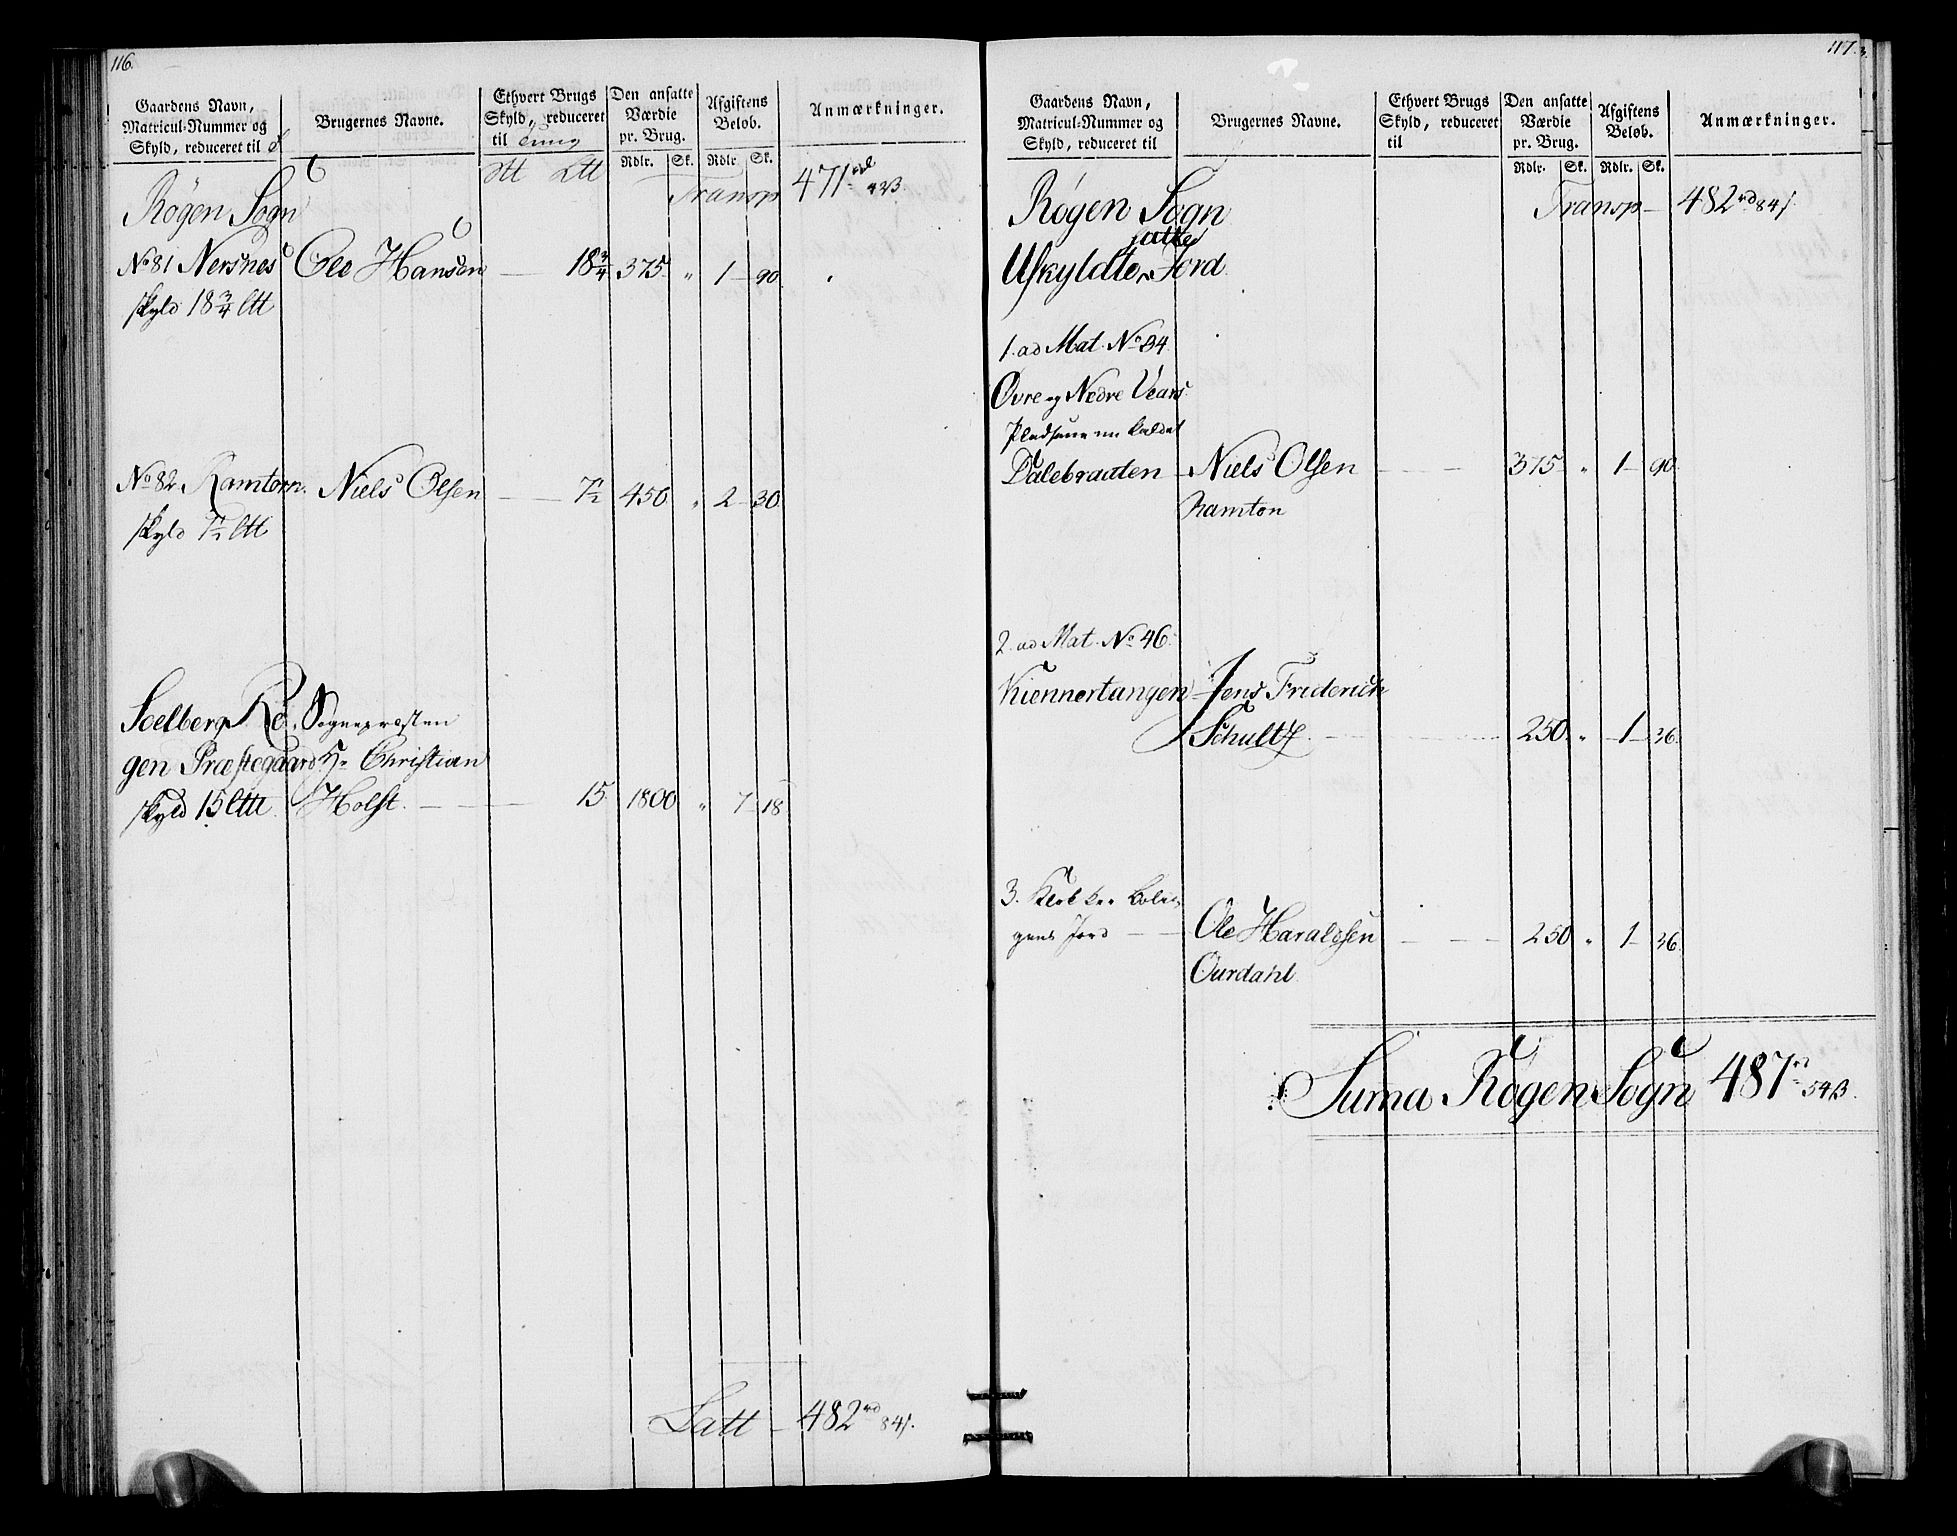 116.
Gaardens Navn,
Matricul-Nummer og
Skyld, reduceret til
Brugernes Navne.
Ethvert Brugs
Skyld, reduceret
til
Den ansatte
Værdie
pr. Brug.
Afgiftens
Beløb.
Anmærkninger.
Rdlr. Sk. Rdlr. Sk.
Røgen Sogn
Transp 471
No 81 Nersnes Ole Hansen — 18¾ 375 " 1 — 90
skyld 18¾ Ltt
No 82 Ramtorn. Niels Olsen — 7½ 450 " 2 — 30
skyld 7½ Ltt
Soelberg Rø- Sognepræsten
gen Præstegaard Hr Christian
skyld 15 Ltt Holst. — 15 1800 " 7 — 18
Latt — 482 rd 84 s.
117.
Gaardens Navn,
Matricul-Nummer og
Skyld, reduceret til
Brugernes Navne.
Ethvert Brugs
Skyld, reduceret
til
Den ansatte
Værdie
pr. Brug.
Afgiftens
Beløb.
Anmærkninger.
Rdlr. Sk. Rdlr. Sk.
Røgen Sogn
Transp — 482 rd 84 s
Uskyldte Jord
1. ad Mat. No 34
Øvre og Nedre Vears
Pladsene nu kaldet
Dalebraaten — Niels Olsen — 375 " 1 — 90
Ramton
2. ad Mat. No 46.
Kiennertangen — Jens Friderich
Schultz — 250 " 1 — 36
3. Klokker Bolig-
gens Jord — Ole Haraldsen — 250 " 1 — 36
Ourdahl
Suma Røgen Sogn 487 rd 54 β.